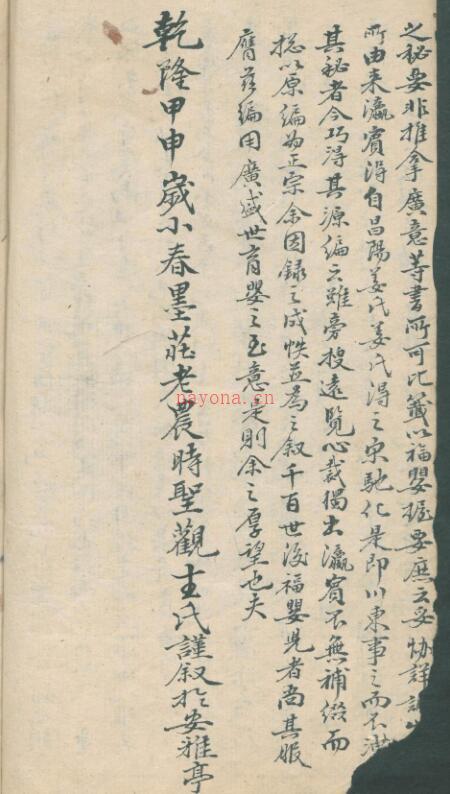 之秘要非推拿廣意等書所可比籤以福嬰握要庶云妥協詳
所由来瀛賓得自昌陽姜氏姜氏得之宋馳化是即川東事之而不
其秘者今巧得其源編云雖旁搜遠覧心裁獨出瀛賓不無補綴而
総以原編為正宗余因録之成帙並為之叙千百世後福嬰児者尚其服
膺茲編用廣盛世育嬰之至意是則余之厚望也夫
乾隆甲申歲小春墨莊老農時聖觀主氏謹叙於安雅亭
payona.cn